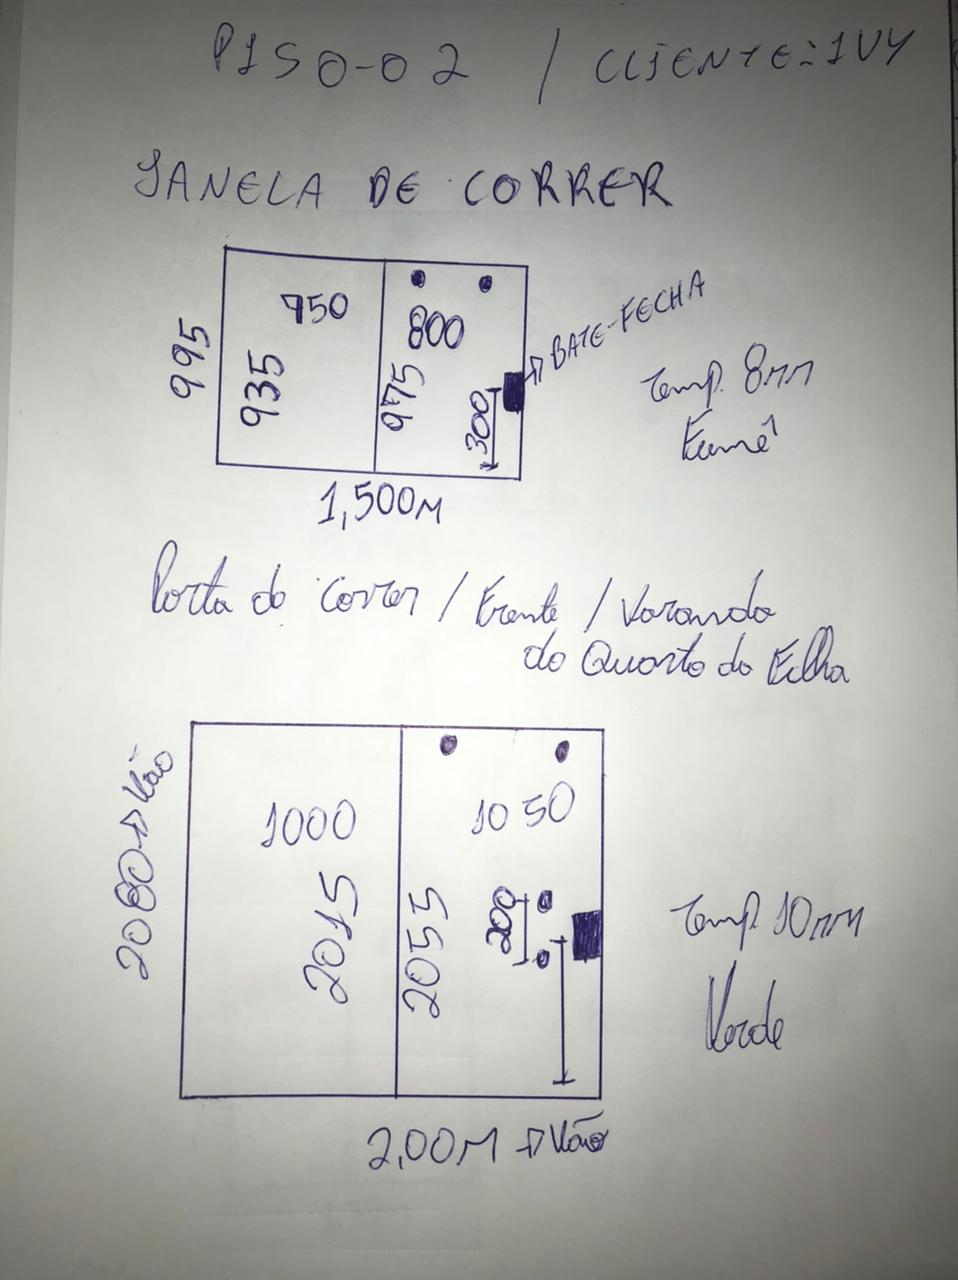 PISO-02 / CLIENTE: IVY
JANELA DE CORRER
750
800
995
935
975
300
BATE-FECHA
Temp. 8mm
Fumê
1,500M
Porta de Correr / Frente / Varanda
do Quarto da Filha
2080 → Vão
1000
1050
2015
2055
200
Temp. 10mm
Verde
2,00M → Vão